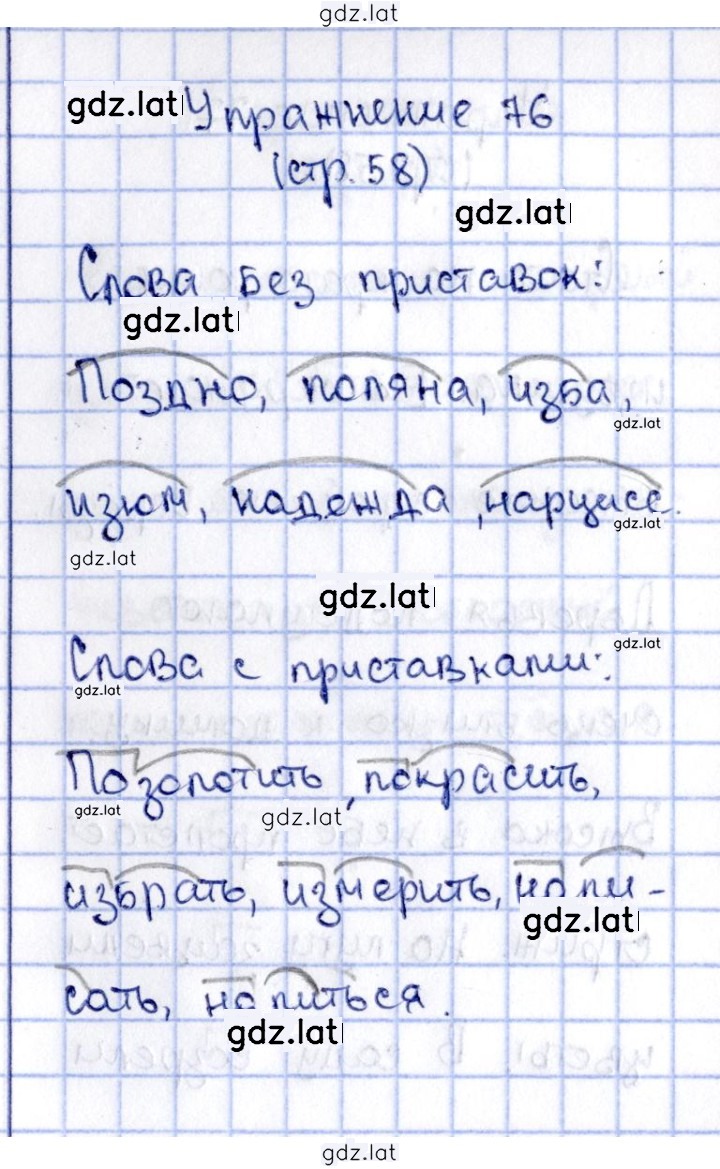 gdz.lat
gdz.lat Упражнение 76
(стр. 58)
gdz.lat
Слова без приставок:
gdz.lat
Поздно, поляна, изба,
gdz.lat
изюм, надежда, нарцисс.
gdz.lat
gdz.lat
gdz.lat
Слова с приставками:
gdz.lat
gdz.lat
Позолотить, покрасить,
gdz.lat
gdz.lat
избрать, измерить, напи-
gdz.lat
сать, напиться.
gdz.lat
gdz.lat